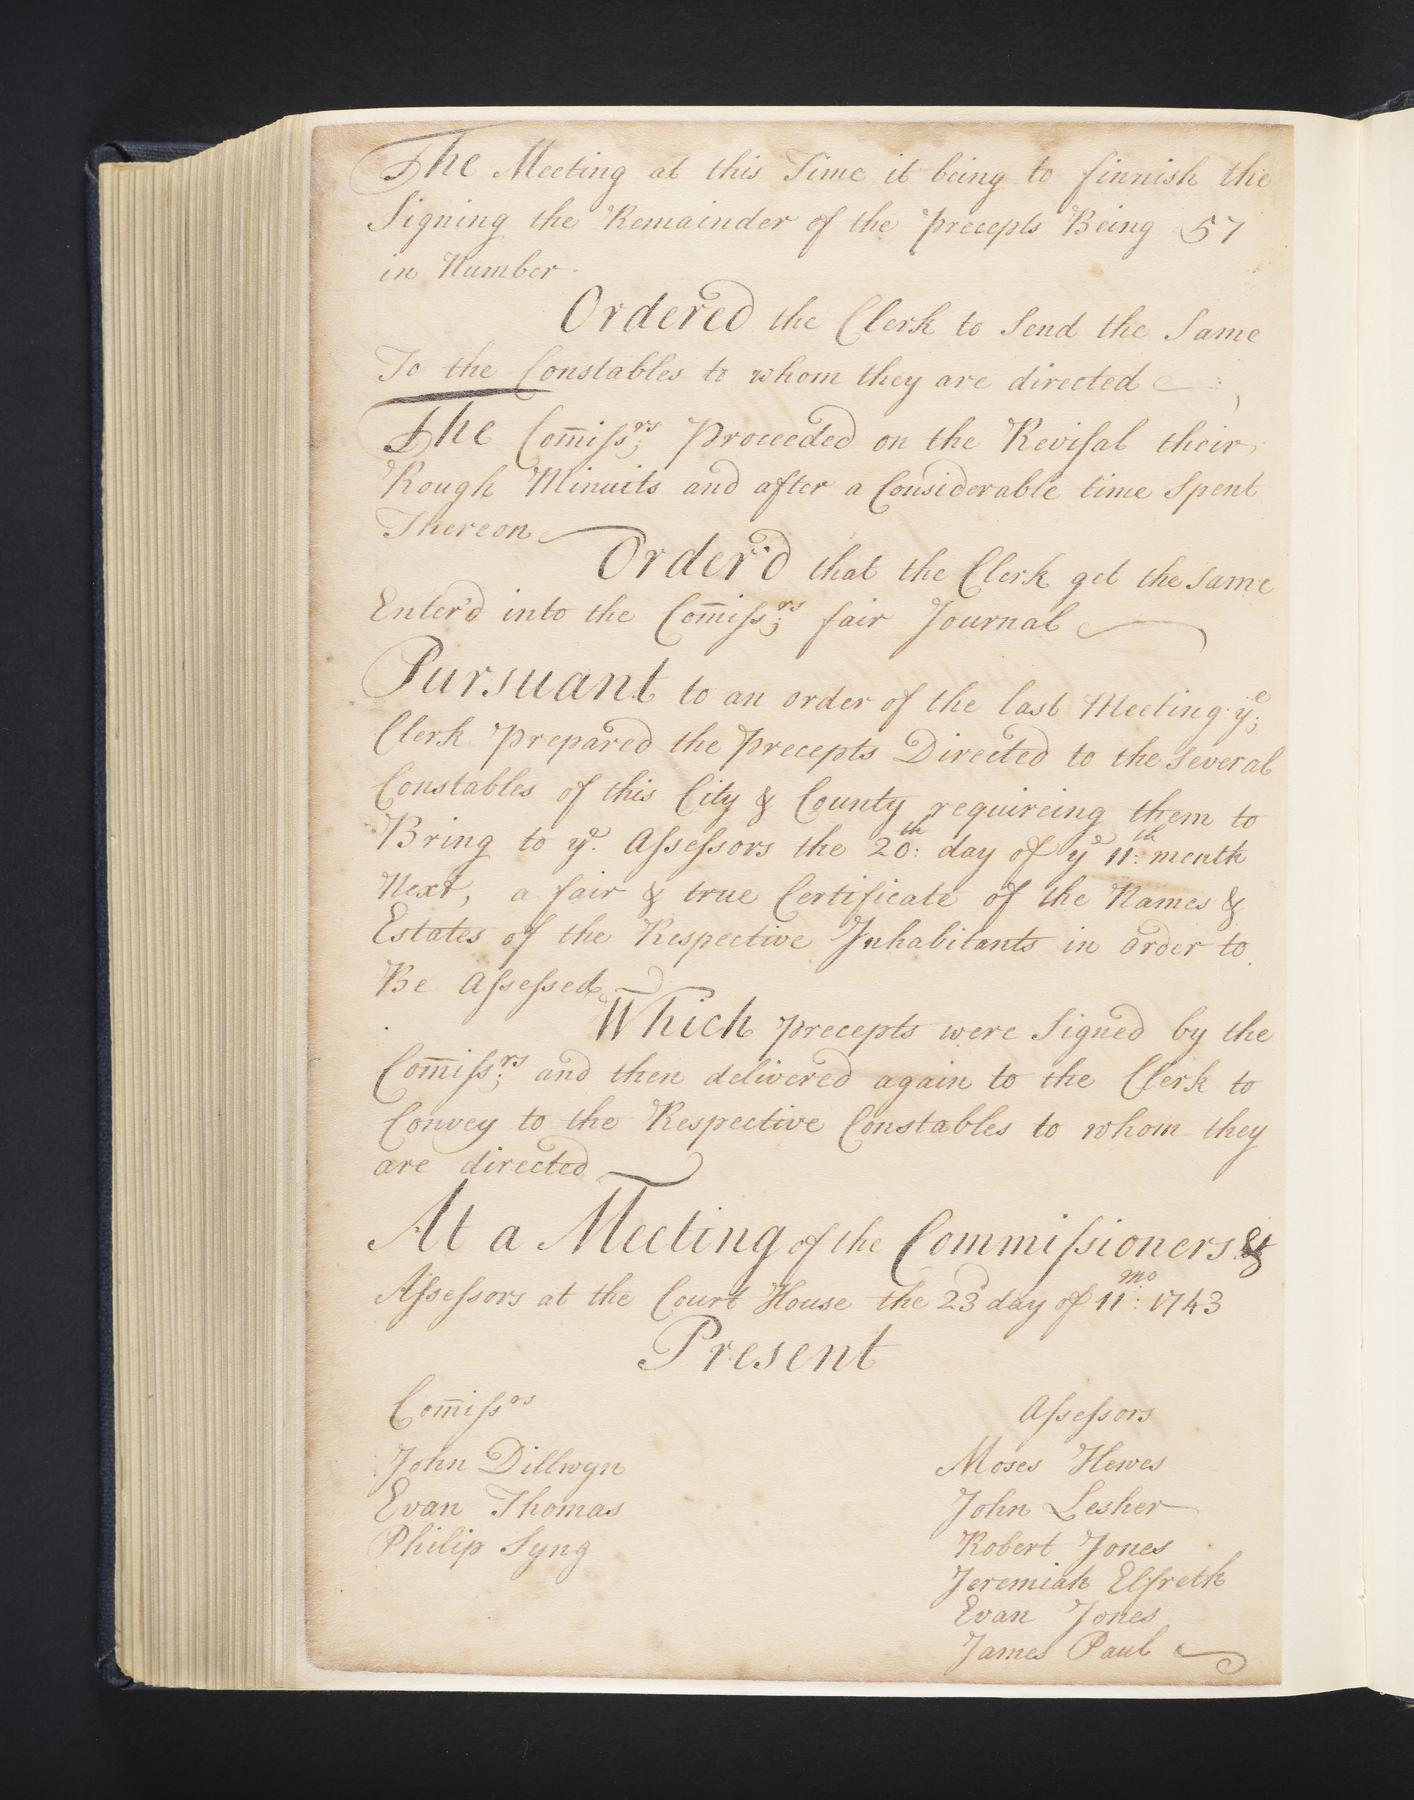 The Meeting at this Time it being to finnish the
Signing the Remainder of the precepts Being 57
in Number
Ordered the Clerk to Send the Same
To the Constables to whom they are directed
The Com̄iſs:rs Proceeded on the Reviſal their
Rough Minuits and after a Considerable time Spent
Thereon
Order'd that the Clerk get the Same
Enter'd into the Com̄iſs:rs fair Journal
Pursuant to an order of the last Meeting ye;
Clerk Prepared the Precepts Directed to the Several
Constables of this City & County requireing them to
Bring to ye. Aſseſsors the 20:th day of ye 11:th month
Next, a fair & true Certificate of the Names &
Estates of the Respective Inhabitants in order to
Be Aſseſsed
Which precepts were Signed by the
Com̄iſs:rs and then delivered again to the Clerk to
Convey to the Respective Constables to whom they
are directed
At a Meeting of the Commiſsioners &
Aſseſsors at the Court House the 23d day of 11:mo 1743
Present
Com̄iſsrs
John Dillwyn
Evan Thomas
Philip Syng
Aſseſsors
Moses Hewes
John Lesher
Robert Jones
Jeremiah Elfreth
Evan Jones
James Paul